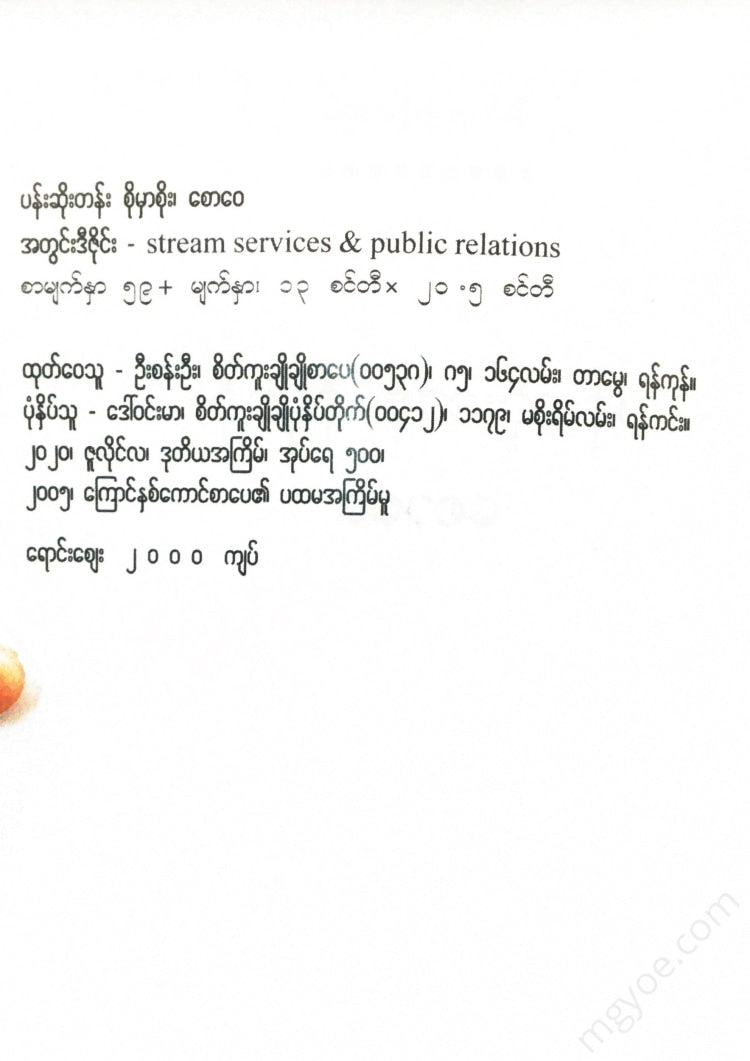 ပန်းဆိုးတန်း စိုမှာစိုး၊ စောဝေ
အတွင်းဒီဇိုင်း - stream services & public relations
စာမျက်နှာ ၅၉ + မျက်နှာ၊ ၁၃ စင်တီ × ၂၀ .၅ စင်တီ
ထုတ်ဝေသူ - ဦးစန်းဦး၊ စိတ်ကူးချိုချိုစာပေ(၀၀၅၃၈)၊ ဂ၅၊ ၁၆၄လမ်း၊ တာမွေ၊ ရန်ကုန်။
ပုံနှိပ်သူ - ဒေါ်ဝင်းမာ၊ စိတ်ကူးချိုချိုပုံနှိပ်တိုက်(၀၀၄၁၂)၊ ၁၁၇၉၊ မစိုးရိမ်လမ်း၊ ရန်ကင်း။
၂၀၂၀၊ ဇူလိုင်လ၊ ဒုတိယအကြိမ်၊ အုပ်ရေ ၅၀၀၊
၂၀၀၅၊ ကြောင်နှစ်ကောင်စာပေ၏ ပထမအကြိမ်မူ
ရောင်းစျေး ၂ ၀ ၀ ၀ ကျပ်
mgyoe.com